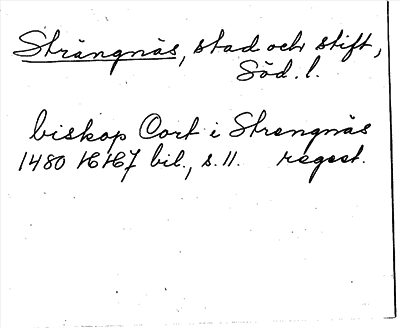 Strängnäs, stad och stift,
Söd. l.
biskop Cort i Strengnäs
1480 HH 7 bil., s. 11. regest.